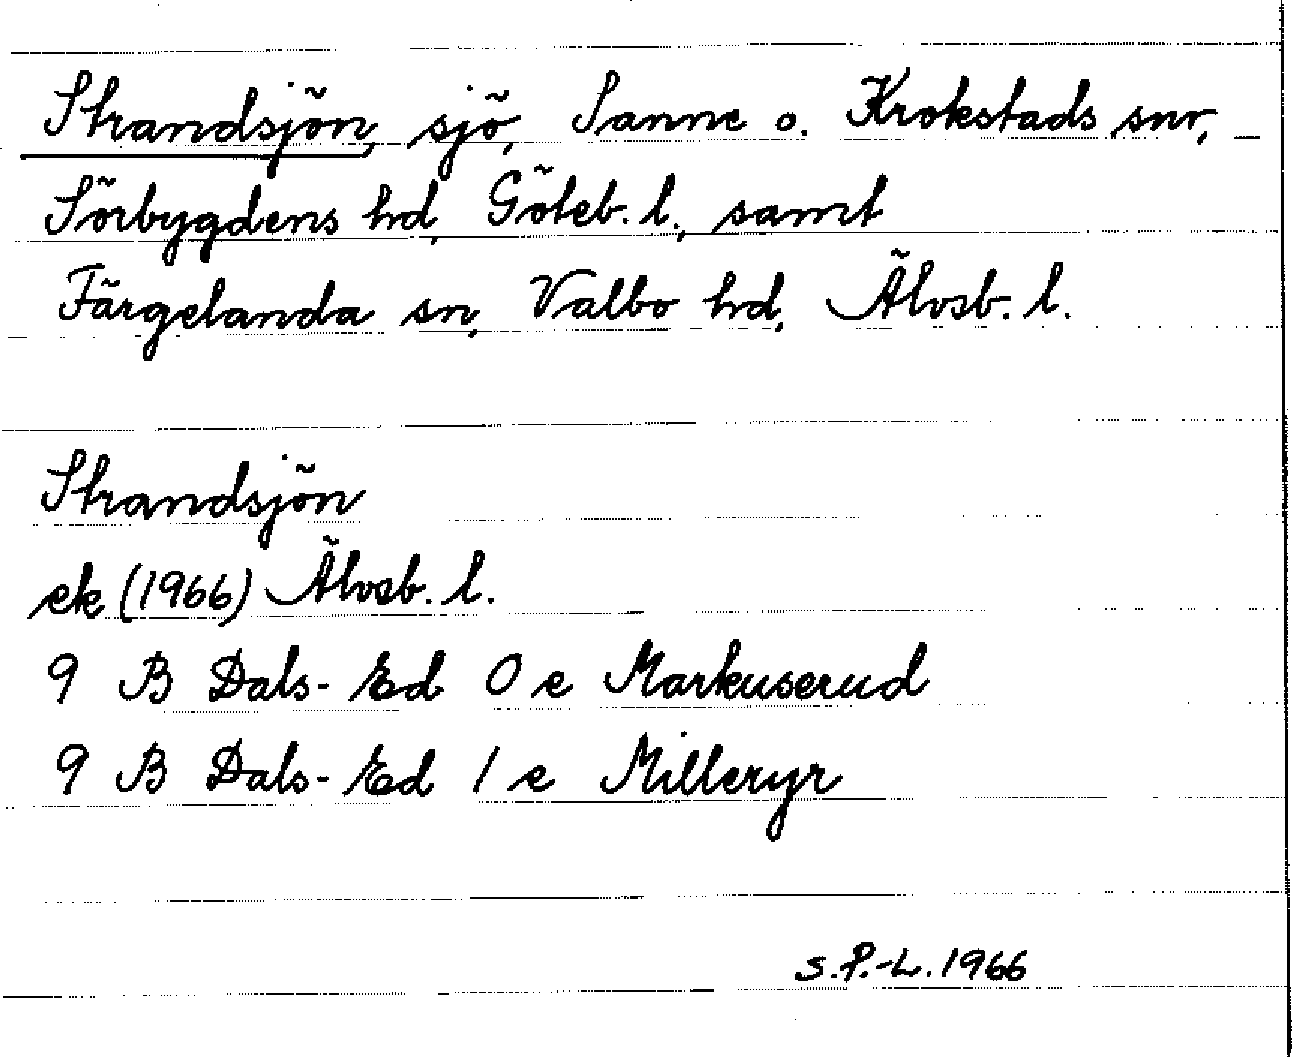 Strandsjön, sjö, Sanne o. Krokstads snr,
Sörbygdens hd, Göteb. l., samt
Färgelanda sn, Valbo hd, Älvsb. l.
Strandsjön
ek (1966) Älvsb. l.
9 B Dals-Ed 0 e Markuserud
9 B Dals-Ed 1 e Milleryr
S.P.-L. 1966